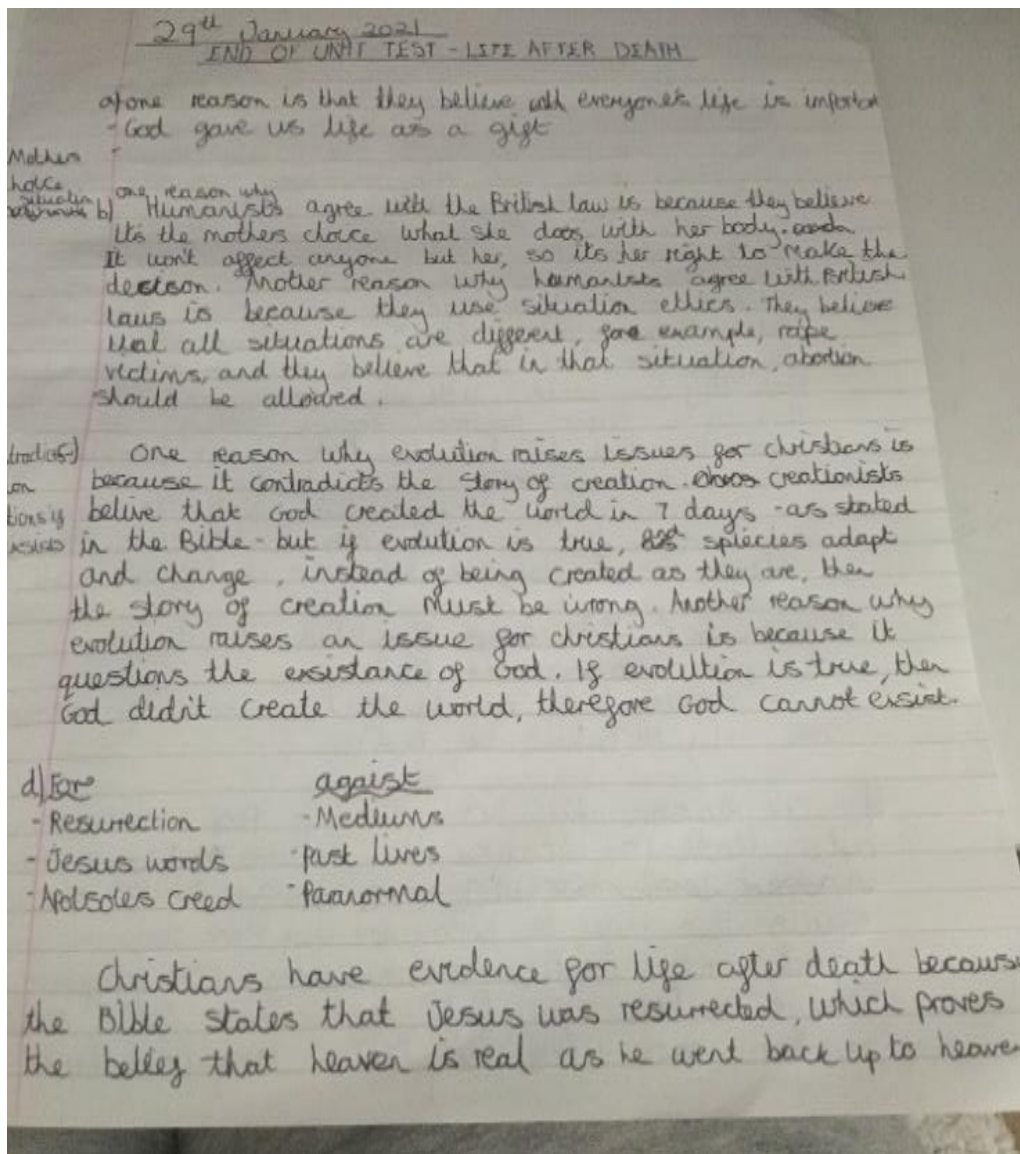 29th January 2021
END OF UNIT TEST - LIFE AFTER DEATH
a) one reason is that they believe everyone's life is importan
- God gave us life as a gift
Mothers
hoice
situation
one reason why
b) Humanists agree with the British law is because they believe
its the mothers choice what she does with her body.
It won't affect anyone but her, so its her right to make the
decison. Another reason why humanists agree with British
laws is because they use situation ethics. They believe
that all situations are different, for example, rape
victims, and they believe that in that situation, abortion
should be allowed.
One reason why evolution raises issues for christians is
on because it contradicts the story of creation. creationists
tions if belive that God created the world in 7 days - as stated
in the Bible - but if evolution is true, species adapt
and change, instead of being created as they are, then
the story of creation must be wrong. Another reason why
evolution raises an issue for christians is because it
questions the exsistance of God. If evolution is true, then
God didn't create the world, therefore God cannot exsist.
d) For agaist
- Resurrection - Mediums
- Jesus words - Past lives
- Apolsoles creed - Paranormal
Christians have evidence for life after death becaus
the Bible states that Jesus was resurrected, which proves
the belief that heaven is real as he went back up to heave